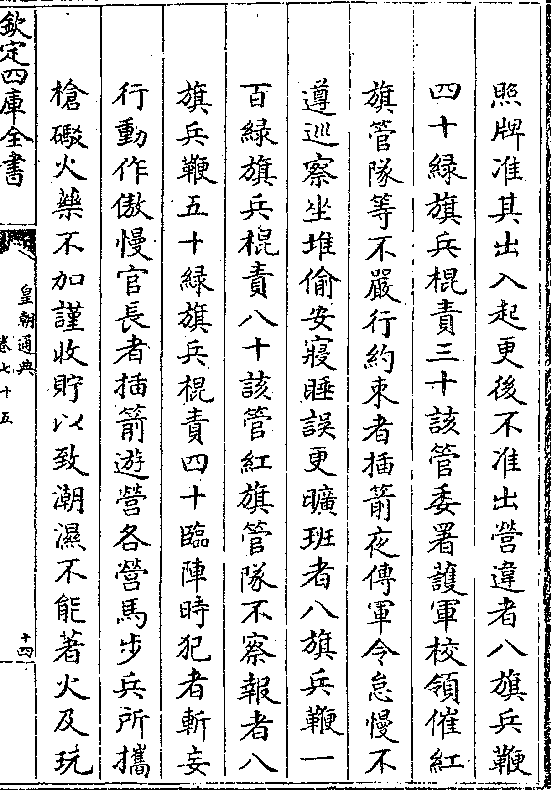 照牌准其出入起更後不准出營違者八旗兵鞭
四十緑旗兵棍責三十該管委署䕶軍校領催紅
旗管隊等不嚴行約束者插箭夜傳軍令怠慢不
遵巡察坐堆偷安寢睡誤更曠班者八旗兵鞭一
百緑旗兵棍責八十該管紅旗管隊不察報者八
旗兵鞭五十緑旗兵棍責四十臨陣時犯者斬妄
行動作傲慢官長者插箭遊營各營馬步兵所攜
槍礟火藥不加謹收貯以致潮濕不能著火及玩
欽定四庫全書
皇朝通典
卷七十五
十四